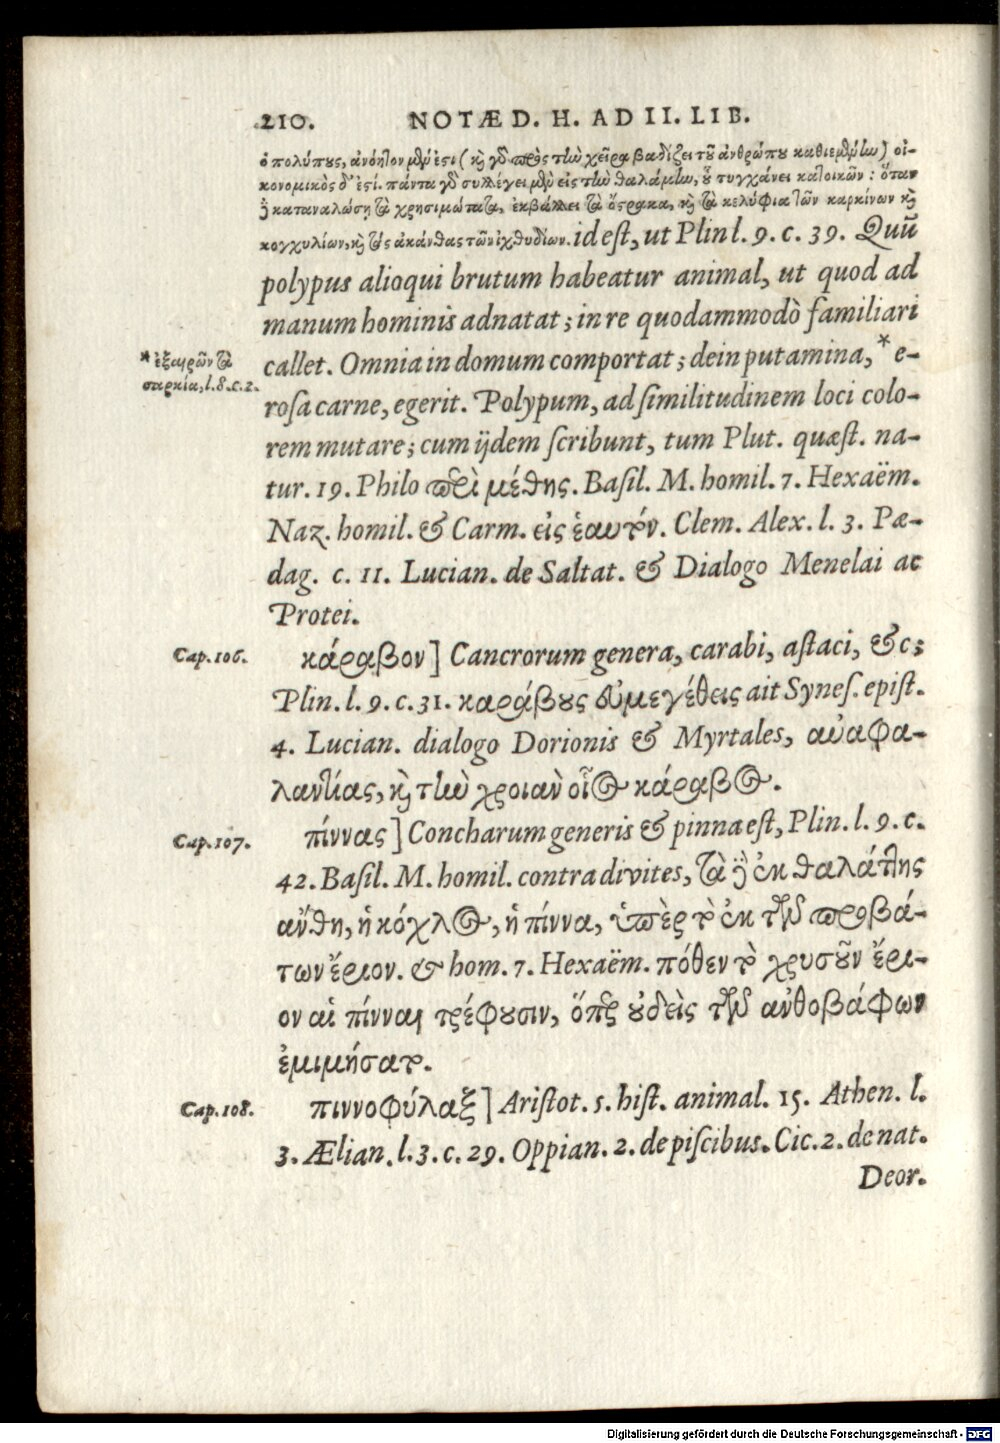 210. NOTÆ D. H. AD II. LIB.
ὁ πολύπους, ἀνόητον μὲν ἐστι (καὶ γὰρ πρὸς τὴν χεῖρα βαδίζει τοῦ ἀνθρώπου καθιεμένην) οἰ-
κονομικὸς δ' ἐστί. πάντα γὰρ συλλέγει μὲν εἰς τὴν θαλάμην, οὗ τυγχάνει κατοικῶν: ὅταν
δὲ καταναλώσῃ τὰ χρησιμώτατα, ἐκβάλλει τὰ ὄστρακα, καὶ τὰ κελύφια τῶν καρκίνων καὶ
κογχυλίων, καὶ τὰς ἀκάνθας τῶν ἰχθυδίων. id est, ut Plin l. 9. c. 39. Quũ
polypus alioqui brutum habeatur animal, ut quod ad
manum hominis adnatat; in re quodammodò familiari
callet. Omnia in domum comportat; dein putamina, * e-
* ἐξαιρῶν τὰ
σαρκία, l. 8. c. 2.
rosa carne, egerit. Polypum, ad similitudinem loci colo-
rem mutare; cum ijdem scribunt, tum Plut. quæst. na-
tur. 19. Philo περὶ μέθης. Basil. M. homil. 7. Hexaëm.
Naz. homil. & Carm. εἰς ἑαυτόν. Clem. Alex. l. 3. Pæ-
dag. c. 11. Lucian. de Saltat. & Dialogo Menelai ac
Protei.
Cap. 106. κάραβον] Cancrorum genera, carabi, astaci, &c;
Plin. l. 9. c. 31. καράβους εὐμεγέθεις ait Synes. epist.
4. Lucian. dialogo Dorionis & Myrtales, ἀναφα-
λαντίας, καὶ τὴν χροιὰν οἷος κάραβος.
Cap. 107. πίννας] Concharum generis & pinna est, Plin. l. 9. c.
42. Basil. M. homil. contra divites, τὰ δὲ ἐκ θαλάττης
ἄνθη, ἡ κόχλος, ἡ πίννα, ὑπὲρ τὸ ἐκ τῶν προβά-
των ἔριον. & hom. 7. Hexaëm. πόθεν τὸ χρυσοῦν ἔρι-
ον αἱ πίνναι τρέφουσιν, ὅπερ οὐδεὶς τῶν ἀνθοβάφων
ἐμιμήσατο.
Cap. 108. πιννοφύλαξ] Aristot. 5. hist. animal. 15. Athen. l.
3. Ælian. l. 3. c. 29. Oppian. 2. de piscibus. Cic. 2. de nat.
Deor.
Digitalisierung gefördert durch die Deutsche Forschungsgemeinschaft - DFG